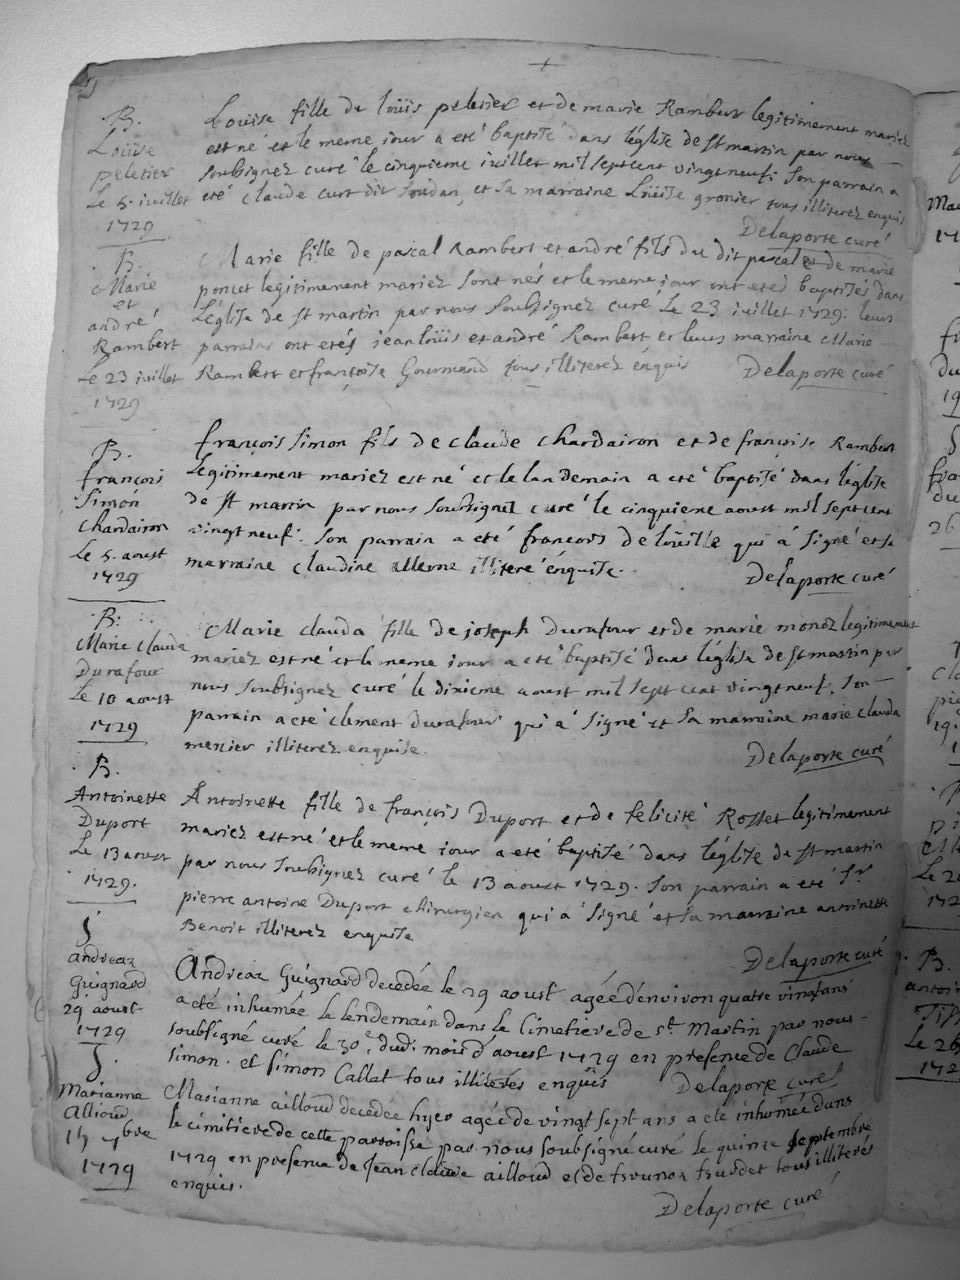 B.
Loüise
peletier
Le 5. juillet
1729
Loüise fille de loüis peletier et de marie Rambert legitimement mariez
est né et le meme jour a eté baptisé dans l'église de St martin par nous
soubsignez curé le cinquieme juillet mil sept cent vingt neuf: son parrain a
eté claude curt dit soudan, et sa marraine Loüise gronier tous illiterez enquis
Delaporte curé
B.
Marie
et
andré
Rambert
Le 23 juillet
1729
Marie fille de pascal Rambert et andré fils du dit pascal et de marie
poncet legitimement mariez sont nés et le meme jour ont eted baptisés dans
L'église de St martin par nous soubsignez curé Le 23 juillet 1729: leurs
parrains ont etés jean loüis et andré Rambert et leurs marraine Marie
Rambert et françoise Gourmand tous illiterez enquis
Delaporte curé
B.
françois
Simon
Chardairon
Le 5. aoust
1729
françois simon fils de claude chardairon et de françoise Rambert
Legitimement mariez est né et le landemain a eté baptisé dans l'église
de St martin par nous soubsigné curé le cinquieme aoust mil sept cent
vingt neuf: son parrain a eté francois deloüille qui a signé et sa
marraine claudine allerne illiteré enquise.
Delaporte curé
B:
Marie Clauda
Durafour
Le 10 aoust
1729
Marie clauda fille de joseph Durafour et de marie monez legitimement
mariez est né et le meme jour a eté baptisé dans l'église de St martin par
nous soubsignez curé le dixieme aoust mil sept cent vingt neuf, son
parrain a eté clement durafour qui a signé et sa marraine marie clauda
mercier illiterez enquise.
Delaporte curé
B.
Antoinette
Duport
Le 13 aoust
1729.
Antoinette fille de françois Duport et de felicité Rosset legitimement
mariez est né et le meme jour a eté baptisé dans l'église de St martin
par nous soubsignez curé le 13 aoust 1729. Son parrain a eté Sr
pierre antoine Duport chirurgien qui a signé et sa marraine antoinette
Benoit illiterez enquise
Delaporte curé
S
andreaz
Guignard
29 aoust
1729
Andreaz Guignard decedée le 29 aoust agée d'environ quatre vingt ans
a eté inhumée le lendemain dans le Cimetiere de St Martin par nous
soubsigné curé le 30e. dud. mois d'aoust 1729 en presence de Claude
Simon. et Simon Callat tous illiterés enquis
Delaporte curé
S.
Marianna
Alliout
15 7bre
1729
Marianne ailloud decedée hyer agée de vingt sept ans a eté inhumée dans
le cimitiere de cette parroisse par nous soubsigné curé le quinze septembre
1729 en presence de Jean claude ailloud et de

tous illiterés
enquis.
Delaporte curé